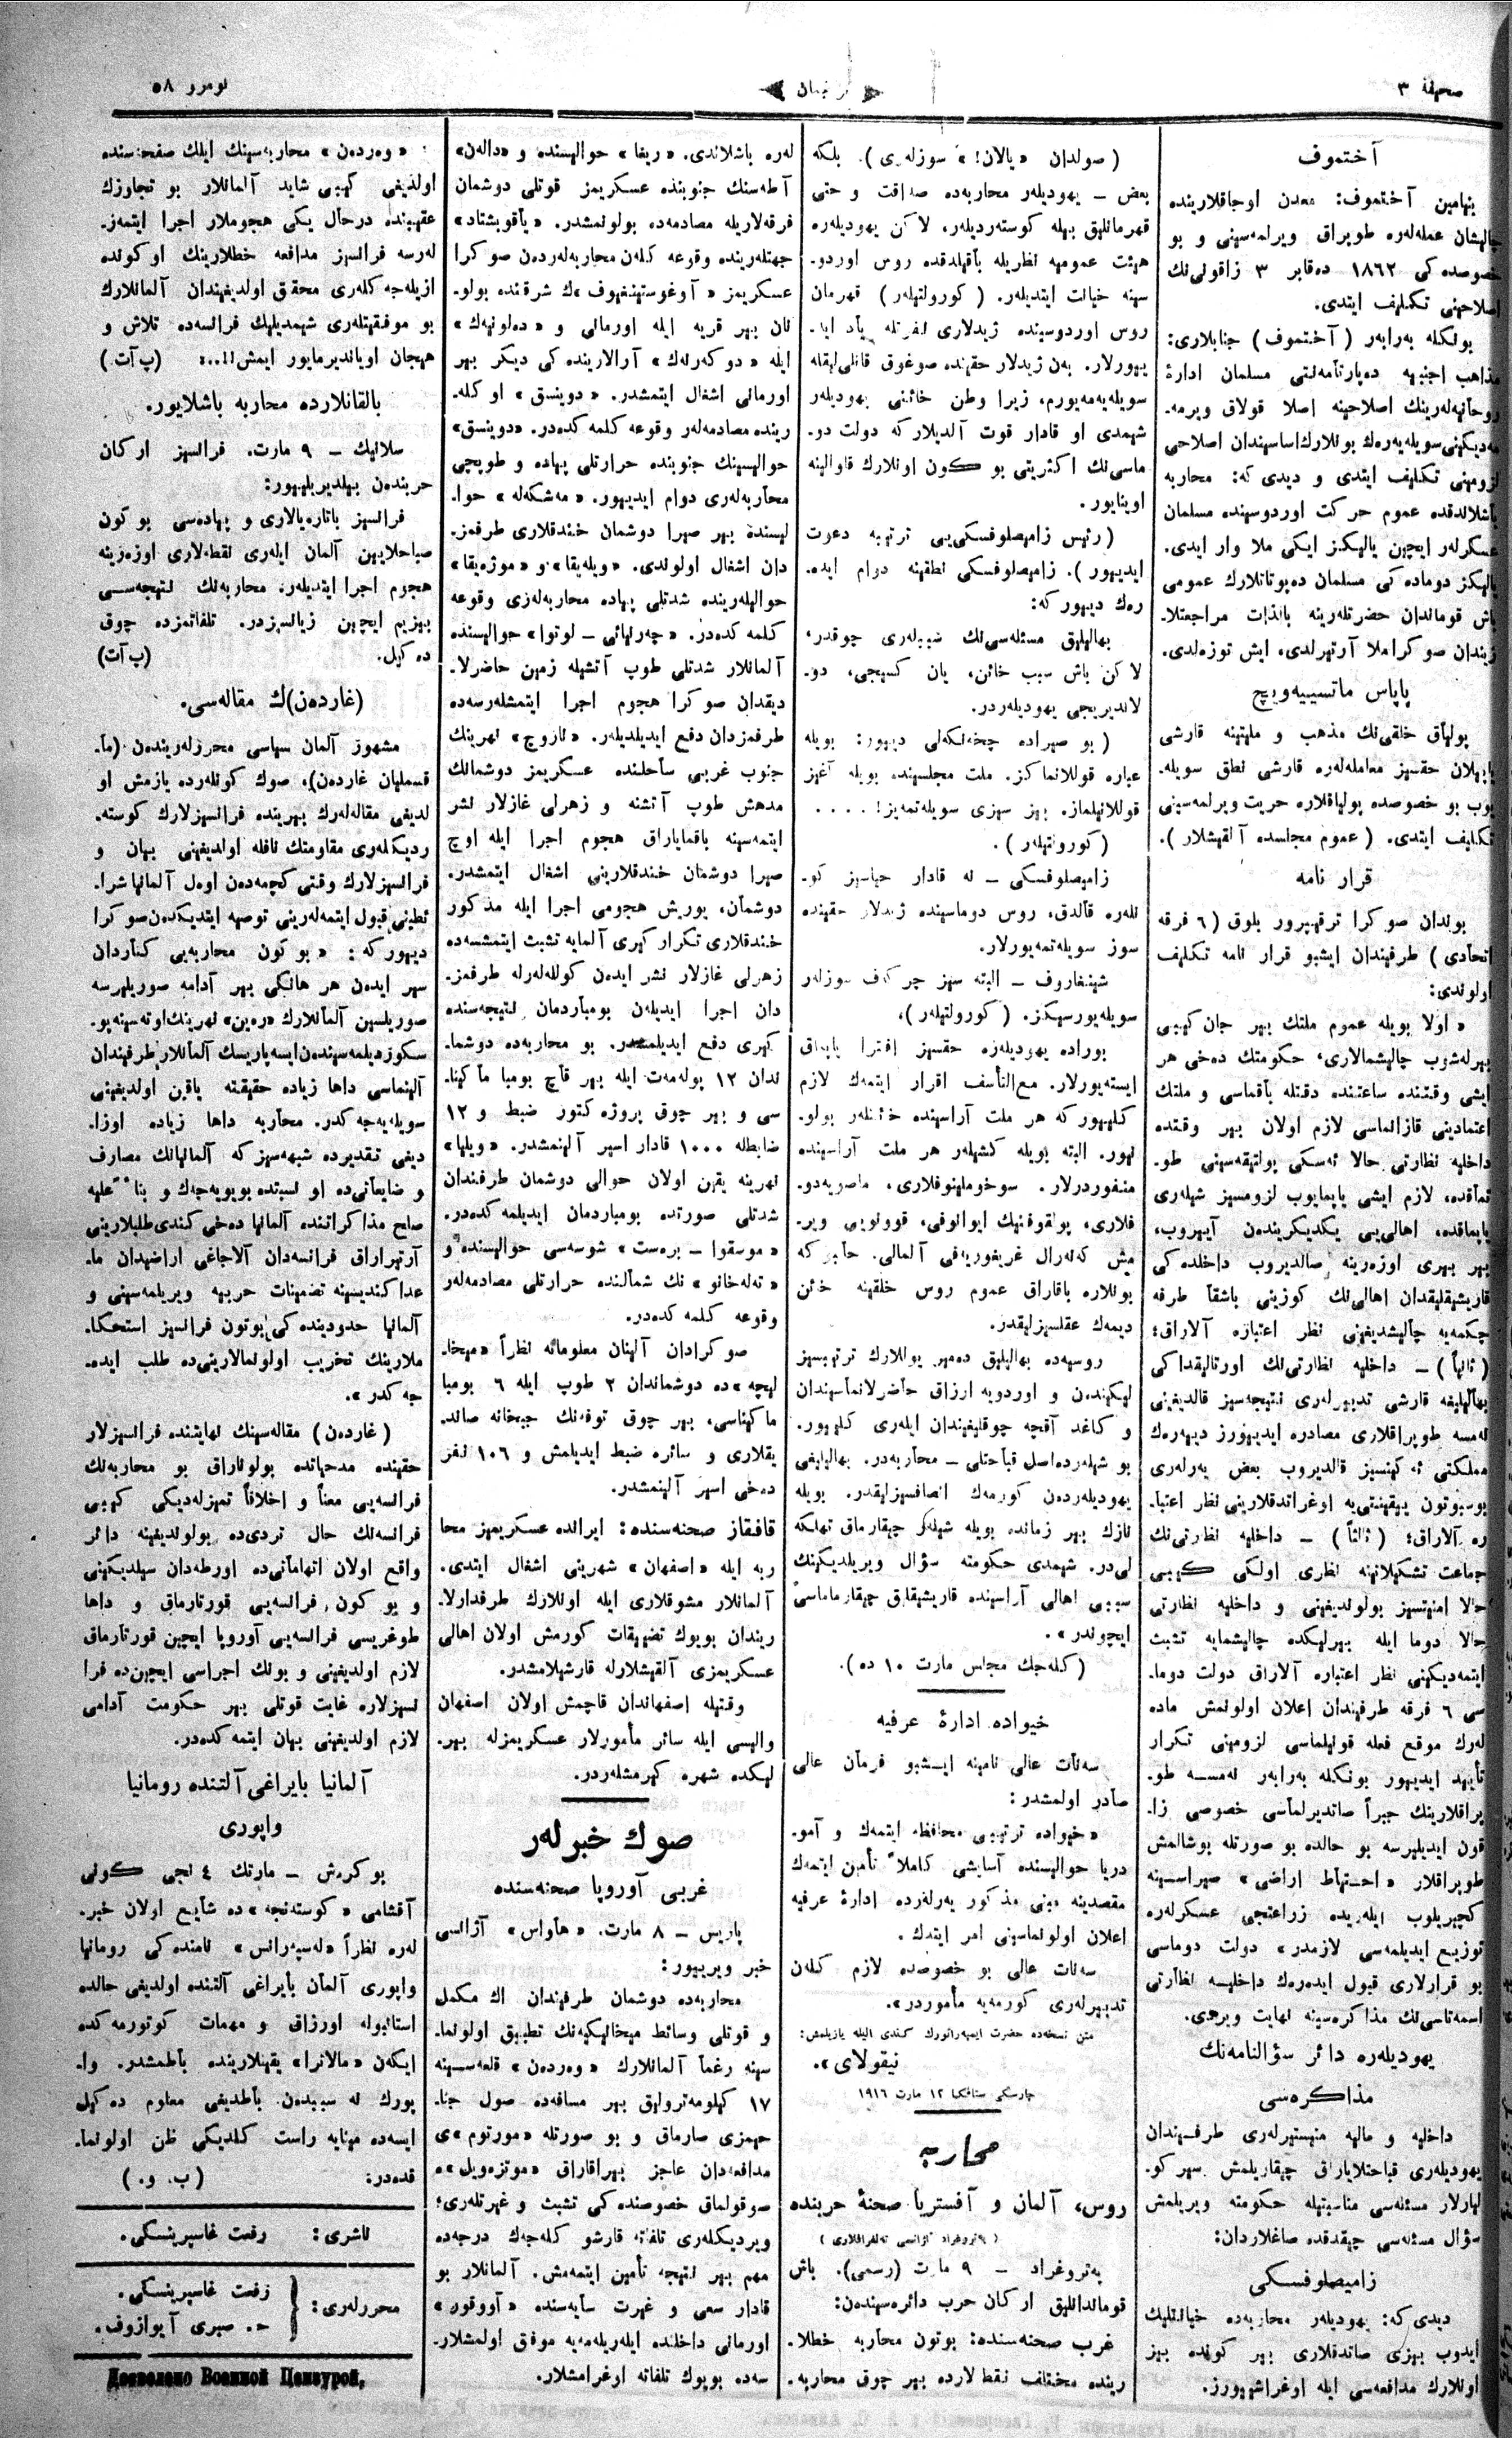 صحیفهٔ ٣
ترجمان
نومرو ٥٨
آختموف
بنیامین آختموف: معدن اوجاقلارینده
چالیشان عمله‌لره طوپراق ویرلمه‌سینی و بو
خصوصده‌کی ١٨٦٢ ده‌قابر ٣ زاقونی‌نك
اصلاحینی تکلیف ایتدی.
بونکله به‌رابه‌ر (آختموف) جنابلاری:
مذاهب اجنبیه ده‌پارتامه‌نتی مسلمان ادارهٔ
روحانیه‌له‌رینك اصلاحینه اصلا قولاق ویرمه‌ـ
مه‌دیکینی سویله‌یه‌ره‌ك بونلارك اساسیندان اصلاحی
لزومینی تکلیف ایتدی و دیدی که: محاربه
باشلالدقده عموم حرکت اوردوسینده مسلمان
عسکرلەر ایچین یالیکز ایکی ملا وار ایدی.
یالیکز دوماده‌کی مسلمان ده‌پوتاتلارك عمومی
باش قوماندان حضرتله‌رینه بالذات مراجعتلاـ
رندان صوکرا ملا آرتیرلدی، ایش توزه‌لدی.
پاپاس ماتسییه‌ویچ
پولیاق خلقی‌نك مذهب و ملیتینه قارشی
یاپیلان حقسیز معامله‌له‌ره قارشی نطق سویله‌ـ
یوب بو خصوصده پولیاقلاره حریت ویرلمه‌سینی
تکلیف ایتدی. (عموم مجلسده آلقیشلار).
قرار نامه
بوندان صوکرا ترقیپرور بلوق (٦ فرقه
اتحادی) طرفیندان ایشبو قرار نامه تکلیف
اولوندی:
« اولا بویله عموم ملتك بیر جان کیبی
بیرله‌شوب چالیشمالاری، حکومتك ده‌خی هر
ایشی وقتنده ساعتنده دقتله باقماسی و ملتك
اعتمادینی قازانماسی لازم اولان بیر وقتده
داخلیه نظارتی حالا ئه‌سکی پولتیقه‌سینی طوـ
تماقده، لازم ایشی یاپمایوب لزومسیز شیله‌ری
یاپماقده، اهالی‌یی یکدیکریندن آییروب،
بیر بیری اوزه‌رینه صالدیروب داخلده‌کی
قاریشیقلیقدان اهالی‌نك کوزینی باشقا طرفه
چکمه‌یه چالیشدیغینی نظر اعتباره آلاراق؛
(ثانیاً) – داخلیه نظارتی‌نك اورتالیقداکی
بهالیلیغه قارشی تدبیرله‌ری نتیجه‌سیز قالدیغینی
نه‌مسه طوپراقلاری مصادره ایدییورز دییه‌ره‌ك
مملکتی ئه‌کینسیز قالدیروب بعض یه‌رله‌ری
بوسبوتون ییقینتی‌یه اوغراتدقلارینی نظر اعتباـ
ره آلاراق؛ (ثالثاً) – داخلیه نظارتی‌نك
جماعت تشکیلاتینه نظری اولکی کیبی
حالا امنیتسیز بولوندیغینی و داخلیه نظارتی
حالا دوما ایله بیرلیکده چالیشمایه تشبث
ایتمه‌دیکینی نظر اعتباره آلاراق دولت دوماـ
سی ٦ فرقه طرفیندان اعلان اولونمش ماده
له‌رك موقع فعله قونیلماسی لزومینی تکرار
تأیید ایدییور بونکله به‌رابه‌ر نه‌مسه طوـ
پراقلارینك جبراً صاتدیرلماسی خصوصی زاـ
قون ایدیلیرسه بو حالده بو صورتله بوشالمش
طوپراقلار « احتیاط اراضی » صیراسینه
کچیریلوب ایله‌ریده زراعتجی عسکرلەره
توزیع ایدیلمه‌سی لازمدر » دولت دوماسی
بو قرارلاری قبول ایده‌ره‌ك داخلیه نظارتی
اسمه‌تاسی‌نك مذاکره‌سینه نهایت ویردی.
یهودیله‌ره دائر سؤالنامه‌نك
مذاکره‌سی
داخلیه و مالیه منیستیرله‌ری طرفیندان
یهودیله‌ری قباحتلایاراق چیقاریلمش سیرکوـ
لیارلار مسئله‌سی مناسبتیله حکومته ویریلمش
سؤال مسئله‌سی چیقدقده صاغلاردان:
زامیصلوفسکی
دیدی که: یهودیله‌ر محاربه‌ده خیانتلیك
ایدوب بیزی صاتدقلاری بیر کونده بیز
اونلارك مدافعه‌سی ایله اوغراشییورز.
(صولدان «یالان!» سوزله‌ری). بلکه
بعض – یهودیله‌ر محاربه‌ده صداقت و حتی
قهرمانلیق بیله کوسته‌ردیله‌ر، لاکن یهودیله‌ره
هیئت عمومیه نظریله باقیلدقده روس اوردوـ
سینه خیانت ایتدیله‌ر. (کورولتیله‌ر) قهرمان
روس اوردوسینده ژیدلاری نفرتله یاد ایدـ
ییورلار. به‌ن ژیدلار حقینده صوغوق قانلی‌لیقله
سویله‌یه‌مه‌یورم، زیرا وطن خائنی یهودیله‌ر
شیمدی او قادار قوت آلدیلار که دولت دوـ
ماسی‌نك اکثریتی بو کون اونلارك قاوالینه
اوینایور.
(رئیس زامیصلوفسکی‌یی ترتیبه دعوت
ایدییور). زامیصلوفسکی نطقینه دوام ایده‌ـ
ره‌ك دییور که:
بهالیلیق مسئله‌سی‌نك سببله‌ری چوقدر،
لاکن باش سبب خائن، یان کسیجی، دوـ
لاندیریجی یهودیله‌ردر.
(بو صیراده چخه‌ئیکه‌لی دییور: بویله
عباره قوللانماکز. ملت مجلسینده بویله آغیز
قوللانیلماز. بیز سیزی سویله‌تمه‌یز! ....
(کورولتیله‌ر).
زامیصلوفسکی – نه قادار حیاسیز کوـ
نله‌ره قالدق، روس دوماسینده ژیدلار حقینده
سوز سویله‌تمه‌یورلار.
شینغاروف – البته سیز چرکف سوزله‌ر
سویله‌یورسیکز. (کورولتیله‌ر)،
بوراده یهودیله‌ره حقسیز افترا یاپماق
ایسته‌یورلار. مع‌التأسف اقرار ایتمه‌ك لازم
کلییور که هر ملت آراسینده خائنله‌ر بولوـ
نیور. البته بویله کشیله‌ر هر ملت آراسینده
منفوردرلار. سوخوملینوفلاری، ماصویه‌دوـ
فلاری، پولقوفنیك ایوانوفی، قوونویی ویرـ
میش که‌نه‌رال غریغوریه‌فی آلمالی. حالبوکه
بونلاره باقاراق عموم روس خلقینه خائن
دیمه‌ك عقلسیزلیقدر.
روسیه‌ده بهالیلیق ده‌میر یوللارك ترتیبسیز
لیکیندن و اوردویه ارزاق حاضرلانماسیندان
و کاغد آقچه چوقلیغیندان ایله‌ری کلییور.
بو شیله‌رده اصل قباحتلی – محاربه‌در. بهالیلیغی
یهودیله‌ردن کورمه‌ك انصافسیزلیقدر. بویله
نازك بیر زمانده بویله شیله‌ر چیقارماق تهلکه
لی‌در. شیمدی حکومته سؤال ویریلدیکینك
سببی اهالی آراسینده قاریشیقلق چیقارماماسی
ایچوندر ».
(کله‌جك مجلس مارت ١٠ ده).
خیواده ادارهٔ عرفیه
سه‌نات عالی نامینه ایشبو فرمان عالی
صادر اولمشدر:
« خیواده ترتیبی محافظه ایتمه‌ك و آموـ
دریا حوالیسنده آسایشی کاملاً تأمین ایتمه‌ك
مقصدینه مبنی مذکور یه‌رله‌رده ادارهٔ عرفیه
اعلان اولونماسینی امر ایتدك.
سه‌نات عالی بو خصوصده لازم کلن
تدبیرله‌ری کورمه‌یه مأموردر».
متن نسخه‌ده حضرت ایمپه‌راتورك کندی الیله یازیلمش:
نیقولای».
چارسکی ستافکا ١٢ مارت ١٩١٦
محاربه
روس، آلمان و آفستریا صحنهٔ حربنده
(په‌تروغراد آژانسی ته‌لغرافلاری)
په‌تروغراد – ٩ مارت (رسمی). باش
قوماندانلیق ارکان حرب دائره‌سیندن:
غرب صحنه‌سنده: بوتون محاربه خطلاـ
رینده مختلف نقطه‌لارده بیر چوق محاربه‌ـ
له‌ره باشلاندی. «ریغا» حوالیسنده و «دالەن»
آطه‌سنك جنوبنده عسکریمز قوتلی دوشمان
فرقه‌لاریله مصادمه‌ده بولونمشدر. «یاقوبشتاد»
جهتله‌رینده وقوعه کلەن محاربه‌له‌ردن صوکرا
عسکریمز «آوغوستینغوف»ك شرقنده بولوـ
نان بیر قریه ایله اورمانی و «ده‌لونیه‌ك»
ایله «دوکه‌رنه‌ك» آرالارینده‌کی دیکر بیر
اورمانی اشغال ایتمشدر. «دوینسق» اوکله‌ـ
رینده مصادمه‌له‌ر وقوعه کلمه‌کده‌در. «دوینسق»
حوالیسینك جنوبنده حرارتلی پیاده و طوپچی
محاربه‌له‌ری دوام ایدییور. «مه‌شکه‌له» حواـ
لیسنده بیر صیرا دوشمان خندقلاری طرفمزـ
دان اشغال اولوندی. «ویله‌یقا» و «موژه‌یقا»
حوالیله‌رینده شدتلی پیاده محاربه‌له‌ری وقوعه
کلمه‌کده‌در. «چه‌رنیاتی – لوتوا» حوالیسنده
آلمانلار شدتلی طوپ آتشیله زمین حاضرلاـ
دیقدان صوکرا هجوم اجرا ایتمشله‌رسه‌ده
طرفمزدان دفع ایدیلدیله‌ر. «ناروچ» نهرینك
جنوب غربی ساحلنده عسکریمز دوشمانك
مدهش طوپ آتشنه و زهرلی غازلار نشر
ایتمه‌سینه باقمایاراق هجوم اجرا ایله اوچ
صیرا دوشمان خندقلارینی اشغال ایتمشدر.
دوشمان، یوریش هجومی اجرا ایله مذکور
خندقلاری تکرار کیری آلمایه تشبث ایتمشسه‌ده
زهرلی غازلار نشر ایده‌ن کولله‌له‌رله طرفمزـ
دان اجرا ایدیلەن بومباردمان نتیجه‌سنده
کیری دفع ایدیلمشدر. بو محاربه‌ده دوشماـ
ندان ١٢ پوله‌مه‌ت ایله بیر قاچ بومبا ماکیناـ
سی و بیر چوق پروژه‌کتور ضبط و ١٢
ضابطله ١٠٠٠ قادار اسیر آلینمشدر. «ویلیا»
نهرینه یقین اولان حوالی دوشمان طرفندان
شدتلی صورتده بومباردمان ایدیلمه‌کده‌در.
«موسقوا – بره‌ست» شوسه‌سی حوالیسنده و
«ته‌له‌خانو» نك شمالنده حرارتلی مصادمه‌له‌ر
وقوعه کلمه‌کده‌در.
صوکرادان آلینان معلوماته نظراً «میخاـ
لیچه» ده دوشماندان ٢ طوپ ایله ٦ بومبا
ماکیناسی، بیر چوق توفه‌نك جبخانه صاندـ
یقلاری و سائره ضبط ایدیلمش و ١٠٦ نفر
ده‌خی اسیر آلینمشدر.
قافقاز صحنه‌سنده: ایرانده عسکریمیز محا
ربه ایله «اصفهان» شهرینی اشغال ایتدی.
آلمانلار مشوقلاری ایله اونلارك طرفدارلاـ
ریندان بویوك تضییقات کورمش اولان اهالی
عسکریمزی آلقیشلارله قارشیلامشدر.
وقتیله اصفهاندان قاچمش اولان اصفهان
والیسی ایله سائر مأمورلار عسکریمزله بیرـ
لیکده شهره کیرمشله‌ردر.
صوك خبرله‌ر
غربی آوروپا صحنه‌سنده
پاریس – ٨ مارت. «هاواس» آژانسی
خبر ویرییور:
محاربه‌ده دوشمان طرفیندان اك مکمل
و قوتلی وسائط میخانیکیه‌نك تطبیق اولونماـ
سینه رغماً آلمانلارك «وه‌ردەن» قلعه‌سینه
١٧ کیلومه‌ترولیق بیر مسافه‌ده صول جناـ
حیمزی صارماق و بو صورتله «مورتوم»ی
مدافعه‌دان عاجز بیراقاراق «موتزه‌ویل»ه
صوقولماق خصوصنده‌کی تشبث و غیرتله‌ری؛
ویردیکله‌ری تلفاته قارشو کله‌جك درجه‌ده
مهم بیر نتیجه تأمین ایتمه‌مش. آلمانلار بو
قادار سعی و غیرت سایه‌سنده «آووقور»
اورمانی داخلنده ایله‌ریله‌مه‌یه موفق اولمشلارـ
سه‌ده بویوك تلفاته اوغرامشلار.
«وه‌ردەن» محاربه‌سینك ایلك صفحه‌سنده
اولدیغی کیبی شاید آلمانلار بو تجاوزك
عقیبنده درحال یکی هجوملار اجرا ایتمه‌زـ
له‌رسه فرانسیز مدافعه خطلارینك اوکونده
ازیله‌جه‌کله‌ری محقق اولدیغیندان آلمانلارك
بو موفقیتله‌ری شیمدیلیك فرانسه‌ده تلاش و
هیجان اویاندیرمایور ایمش!!..: (پ آت.)
بالقانلارده محاربه باشلایور.
سلانیك – ٩ مارت. فرانسیز ارکان
حربندن بیلدیریلییور:
فرانسیز باتاره‌یالاری و پیاده‌سی بو کون
صباحلایین آلمان ایله‌ری نقطه‌لاری اوزه‌رینه
هجوم اجرا ایتدیله‌ر. محاربه‌نك نتیجه‌سی
بیزیم ایچین زیانسیزدر. تلفاتمزده چوق
ده‌کیل. (پ آت)
(غاردەن)ك مقاله‌سی.
مشهور آلمان سیاسی محررله‌ریندەن (ماـ
قسملیان غاردەن)، صوك کونله‌رده یازمش او
لدیغی مقاله‌له‌رك بیرینده فرانسیزلارك کوسته‌ـ
ردیکله‌ری مقاومتك نافله اولدیغینی بیان و
فرانسیزلارك وقتی کچمه‌دەن اول آلمانیا شراـ
ئطینی قبول ایتمه‌له‌رینی توصیه ایتدیکدەن صوکرا
دییور که: « بو کون محاربه‌یی کناردان
سیر ایدەن هر هانکی بیر آدامه صوریلیرسه
صوریلسین آلمانلارك «رەین» نهرینك اوته‌سینه پوـ
سکوردیلمه‌سیندەن ایسه پاریسك آلمانلار طرفیندان
آلینماسی داها زیاده حقیقته یاقین اولدیغینی
سویله‌یه‌جه‌کدر. محاربه داها زیاده اوزاـ
دیغی تقدیرده شبهه‌سیز که آلمانیانك مصارف
و ضایعاتی‌ده او نسبتده بویویه‌جه‌ك و بناءً علیه
صلح مذاکراتنده آلمانیا ده‌خی کندی طلبلارینی
آرتیراراق فرانسه‌دان آلاجاغی اراضیدان ماـ
عدا کندیسینه تضمینات حربیه ویریلمه‌سینی و
آلمانیا حدودینده‌کی بوتون فرانسیز استحکاـ
ملارینك تخریب اولونمالارینی‌ده طلب ایده‌ـ
جه‌کدر ».
(غاردەن) مقاله‌سینك نهایتنده فرانسیزلار
حقینده مدحیاتده بولوناراق بو محاربه‌نك
فرانسه‌یی معناً و اخلاقاً تمیزله‌دیکی کیبی
فرانسه‌نك حال تردی‌ده بولوندیغینه دائر
واقع اولان اتهاماتی‌ده اورطه‌دان سیلدیکینی
و بو کون، فرانسه‌یی قورتارماق و داها
طوغریسی فرانسه‌یی آوروپا ایچین قورتارماق
لازم اولدیغینی و بونك اجراسی ایچین‌ده فرا
نسیزلاره غایت قوتلی بیر حکومت آدامی
لازم اولدیغینی بیان ایتمه‌کده‌در.
آلمانیا بایراغی آلتنده رومانیا
واپوری
بوکرەش – مارتك ٤ نجی کونی
آقشامی «کوستەنجه» ده شایع اولان خبرـ
له‌ره نظراً «له‌سپه‌رانس» نامنده‌کی رومانیا
واپوری آلمان بایراغی آلتنده اولدیغی حالده
استانبوله اورزاق و مهمات کوتورمه‌کده
ایکەن «مالانرا» یقینلارینده باطمشدر. واـ
پورك نه سببدەن باطدیغی معلوم ده‌کیل
ایسه‌ده مینایه راست کلدیکی ظن اولونماـ
قده‌در. (پ. و.)
ناشری: رفعت غاسپرینسکی.
محررله‌ری: رفعت غاسپرینسکی.
ح. صبری آیوازوف.
Дозволено Военной Цензурой,